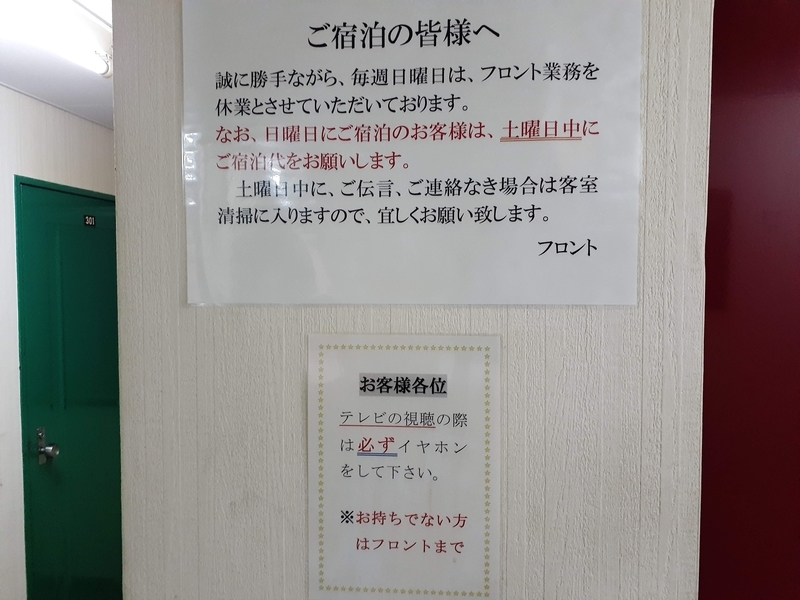 ご宿泊の皆様へ
誠に勝手ながら、毎週日曜日は、フロント業務を
休業とさせていただいております。
なお、日曜日にご宿泊のお客様は、土曜日中に
ご宿泊代をお願いします。
土曜日中に、ご伝言、ご連絡なき場合は客室
清掃に入りますので、宜しくお願い致します。
フロント
301
お客様各位
テレビの視聴の際
は必ずイヤホン
をして下さい。
※お持ちでない方
はフロントまで